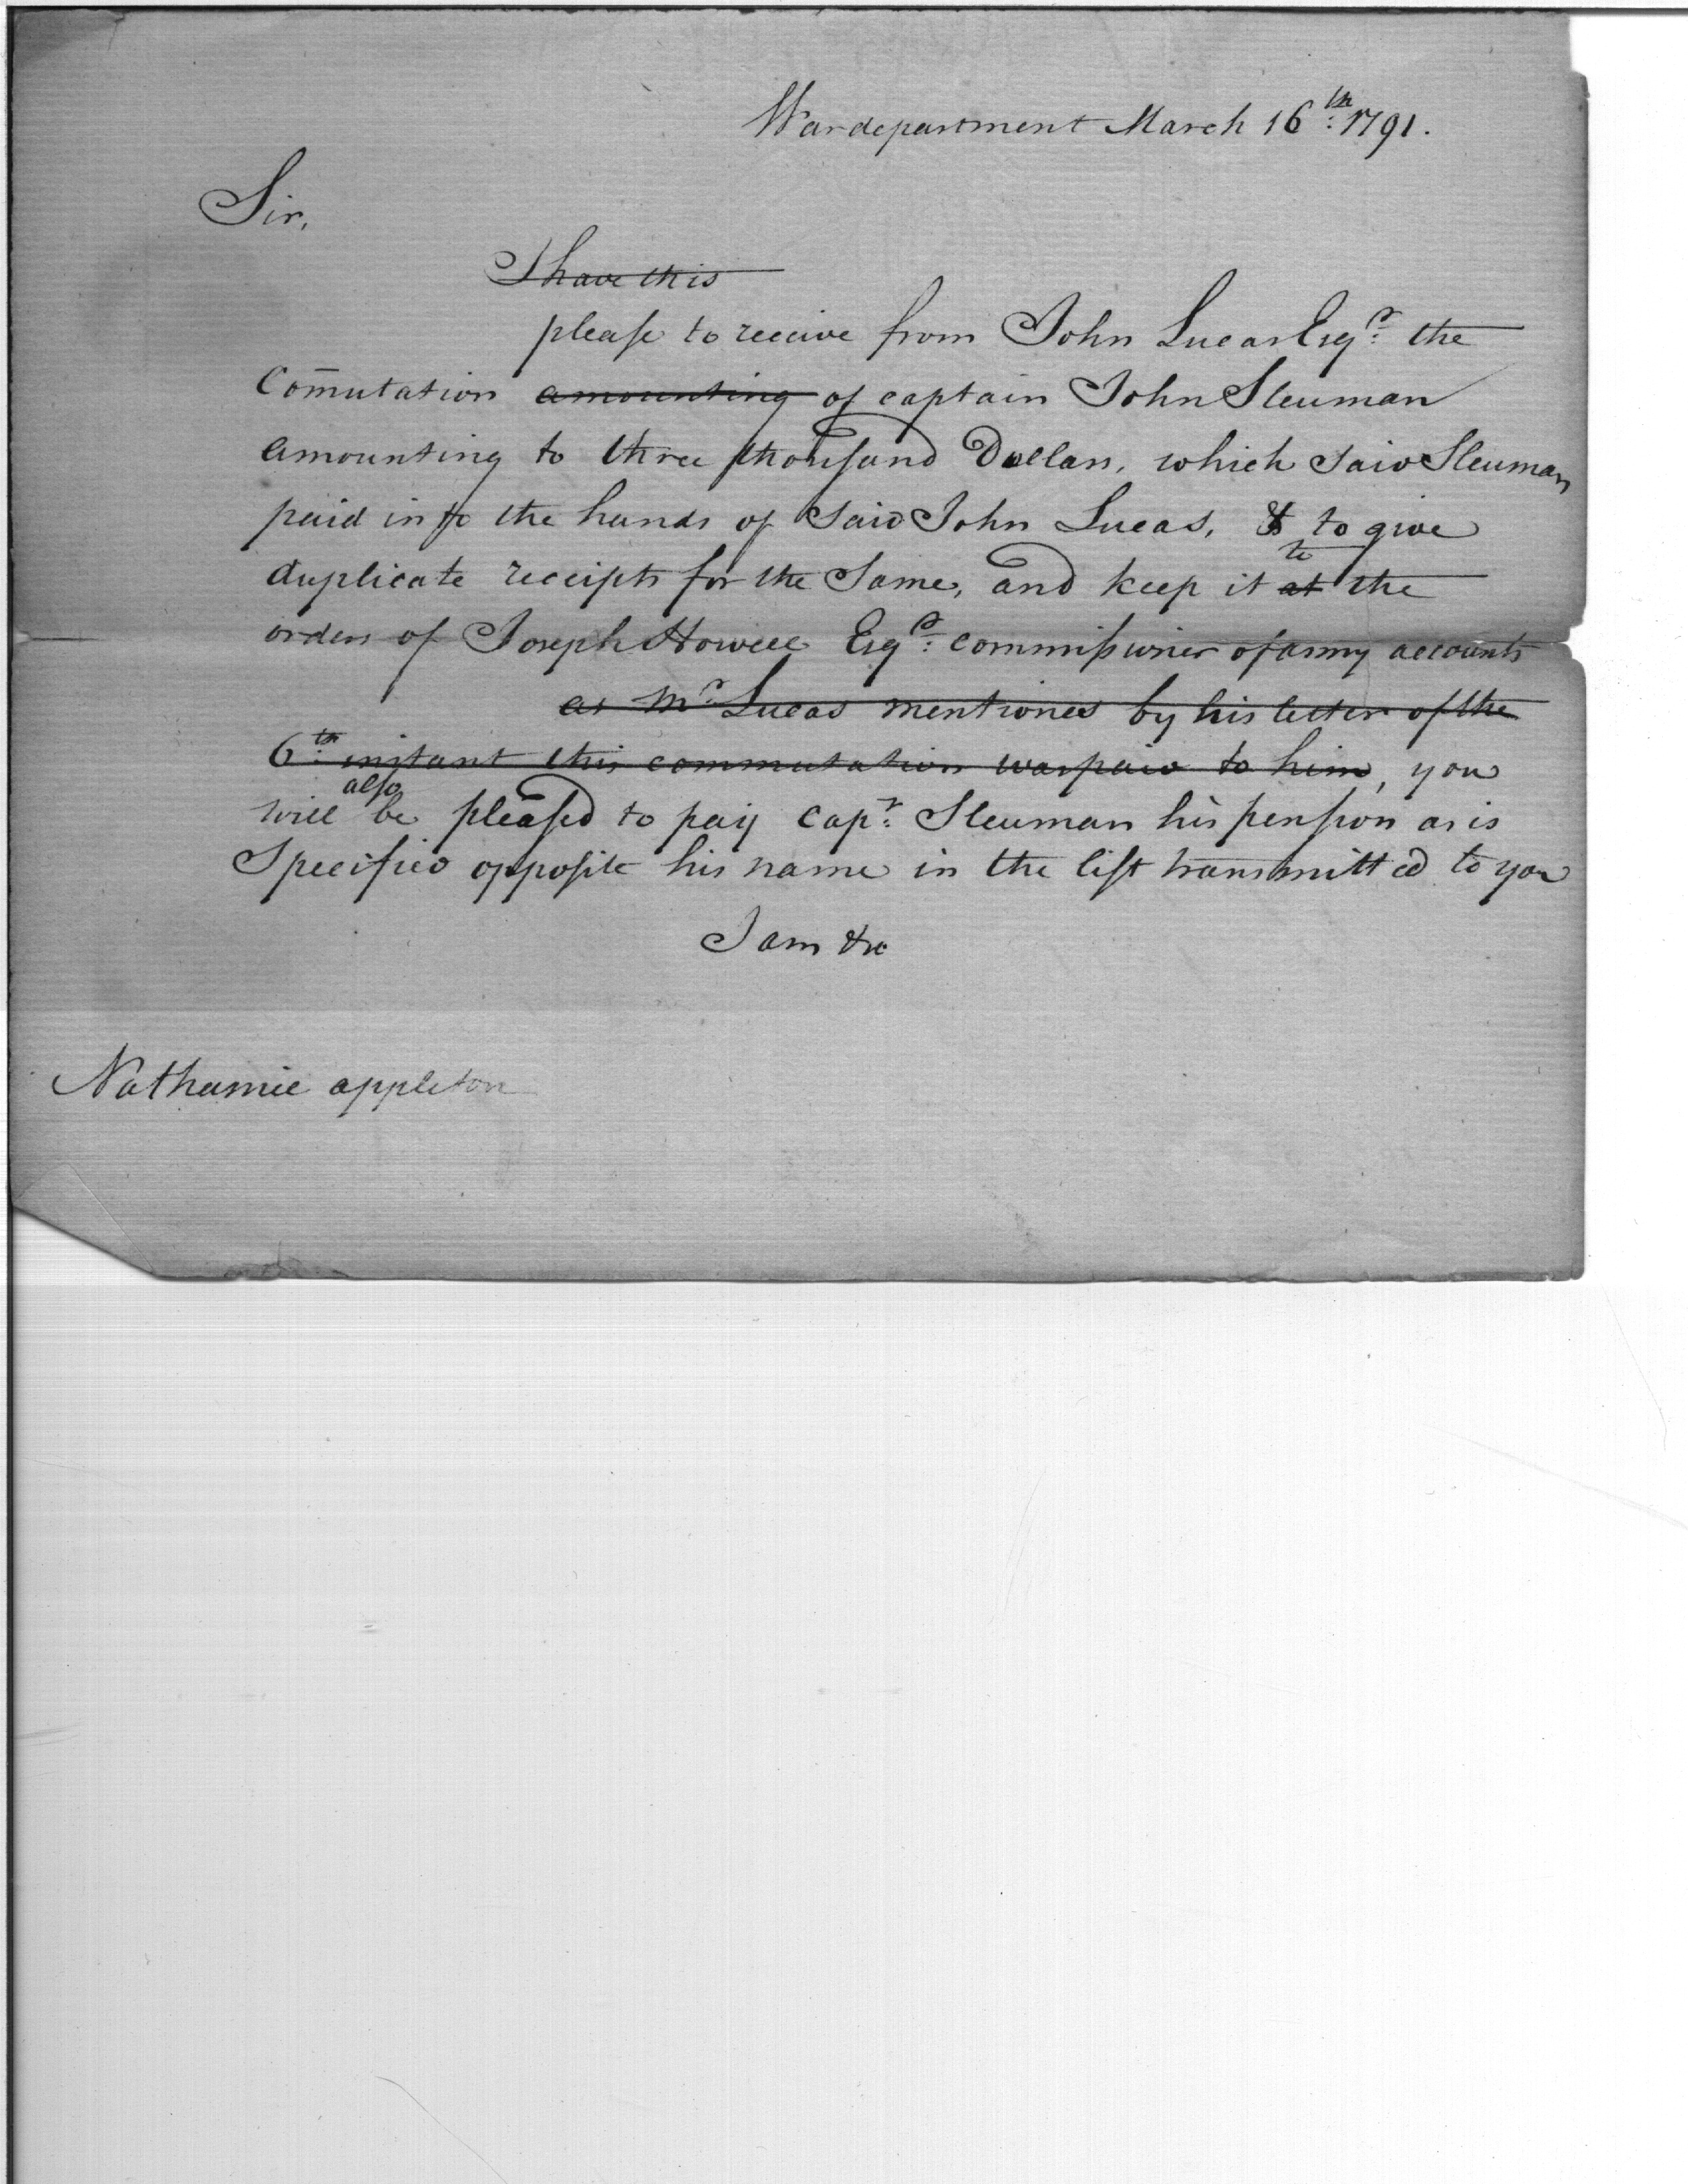 War department March 16th: 1791.
Sir,
I have this
please to receive from John Lucas Esqr: the
Com̄utation amounting of captain John Sleuman
amounting to three thousand Dollars, which said Sleuman
paid into the hands of said John Lucas, & to give
duplicate receipts for the same, and keep it at to the
orders of Joseph Howell Esqr: commissioner of army accounts
as Mr: Lucas mentiones by his letter of the
6th: instant this commutation was paid to him, you
will also be pleased to pay Capt: Sleuman his pension as is
Specified opposite his name in the list transmitted to you
I am &c
Nathaniel appleton